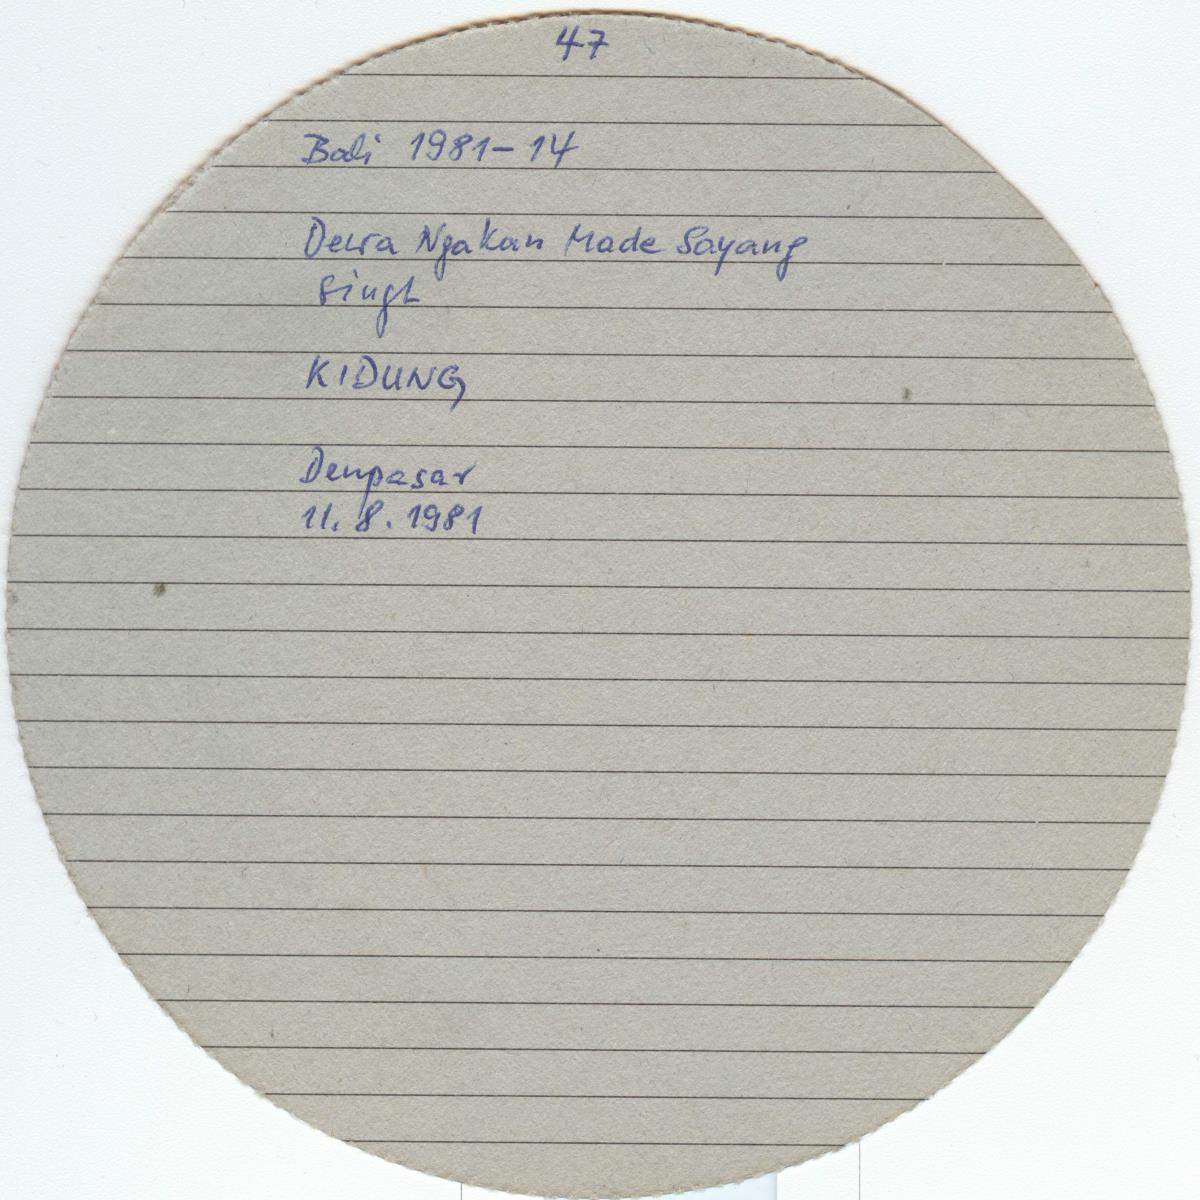 47
Bali 1981-14
Dewa Ngakan Made Sayang
singt
KIDUNG
Denpasar
11. 8. 1981